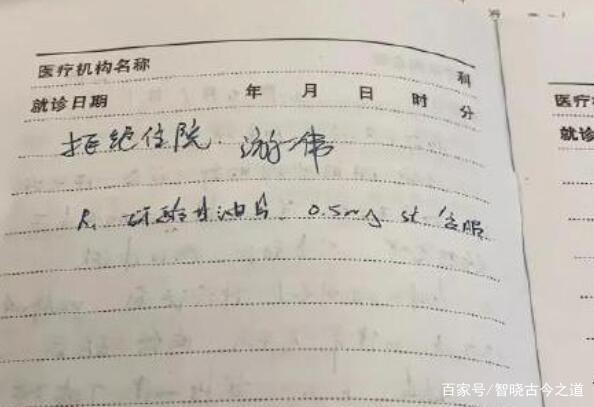 医疗机构名称 科
就诊日期 年 月 日 时 分
拒绝住院 游伟
R. 硝酸甘油片 0.5mg st 含服
医疗
就诊
百家号/智晓古今之道